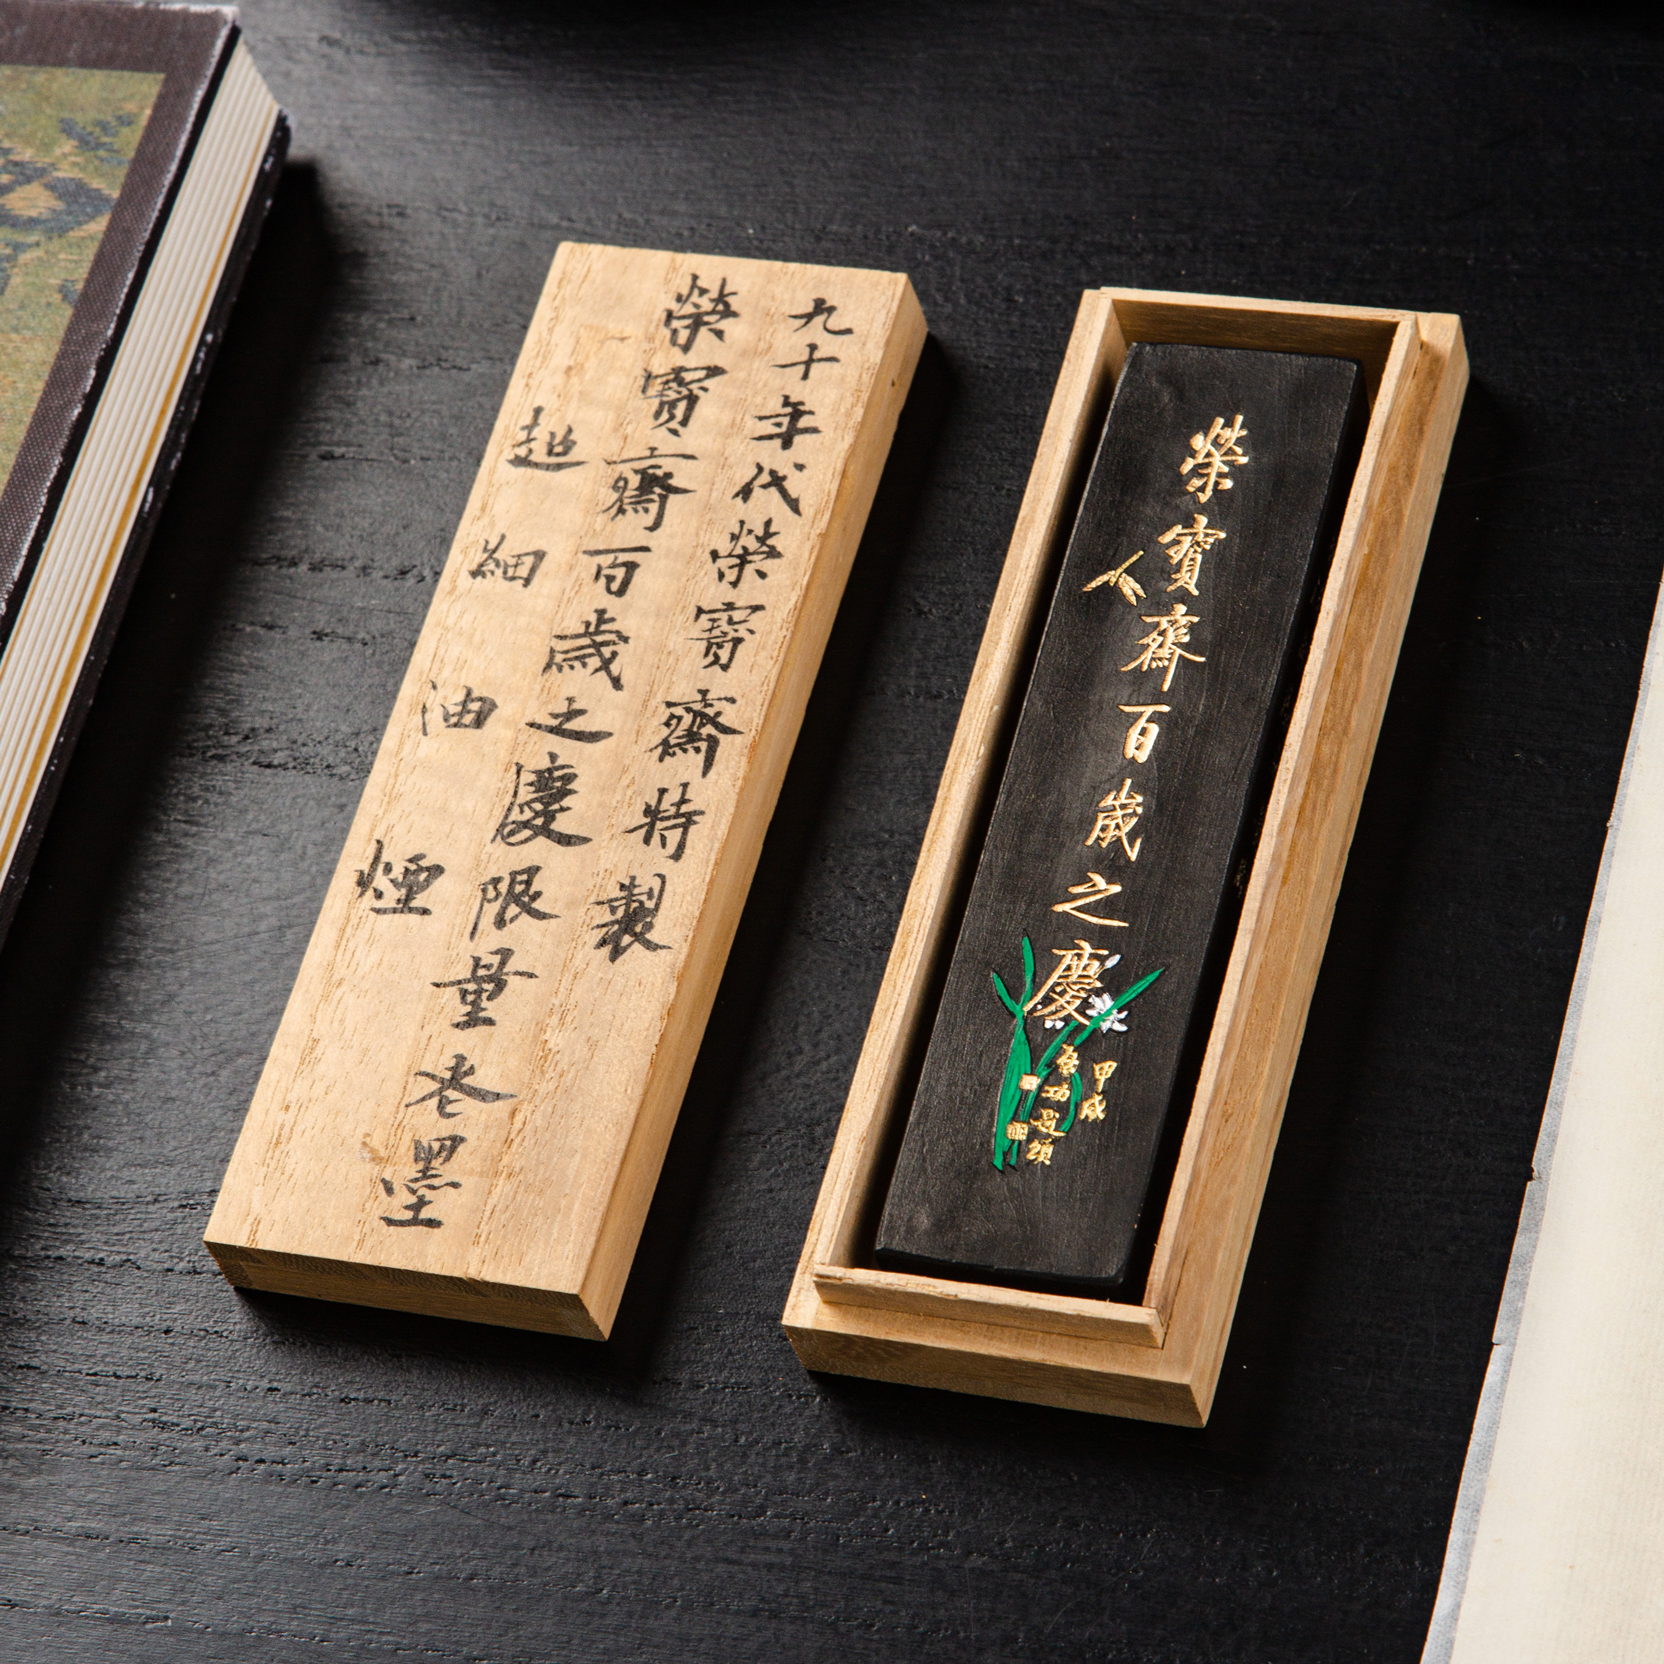 九十年代榮寳齋特製
榮寳齋百歲之慶限量老墨
超細油煙
榮寶齋百歲之慶
甲戌
啟功題頌